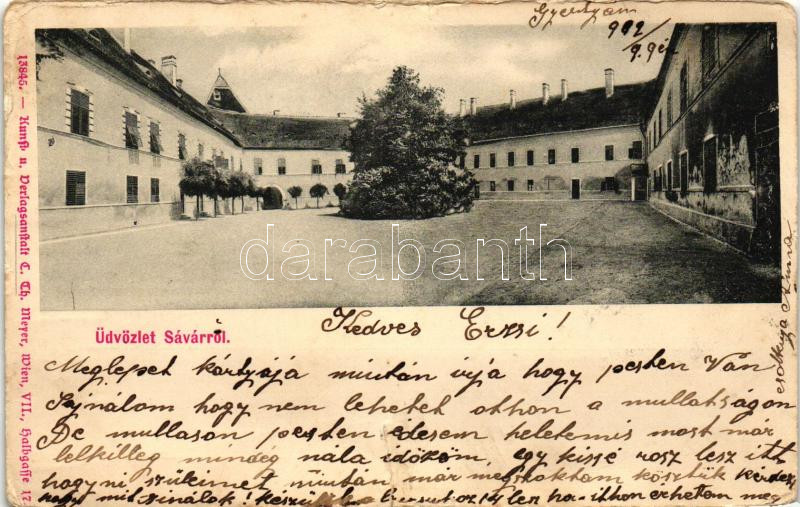 Gyertyám
902
9.9én
13845. — Kunst u. Verlagsanstalt C. Th. Meyer, Wien, VII., Halbgasse 17
darabanth
Üdvözlet Sávárról.
Kedves Erzsi!
Meglepet kártyája miután irja hogy pesten Ván
Sajnálom hogy nem lehetek othon a mullatságon
De mullason pesten édesem heletemis most már
lelkilleg mindég nála időzöm, egy kissé rosz lesz itt
hagyni szüleimet miután már megszoktam köztük
hogy mit sinálok! készül
csólkuja Annus